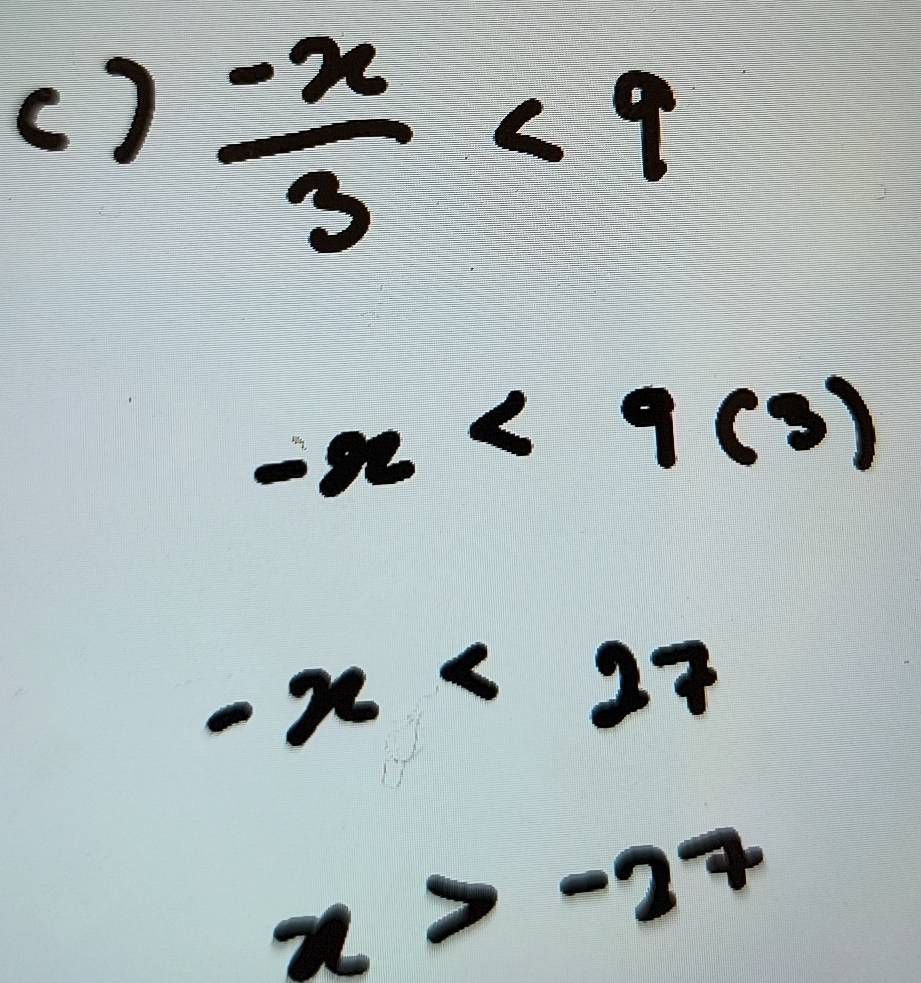 c) -x/3 < 9
-x < 9(3)
-x < 27
x > -27